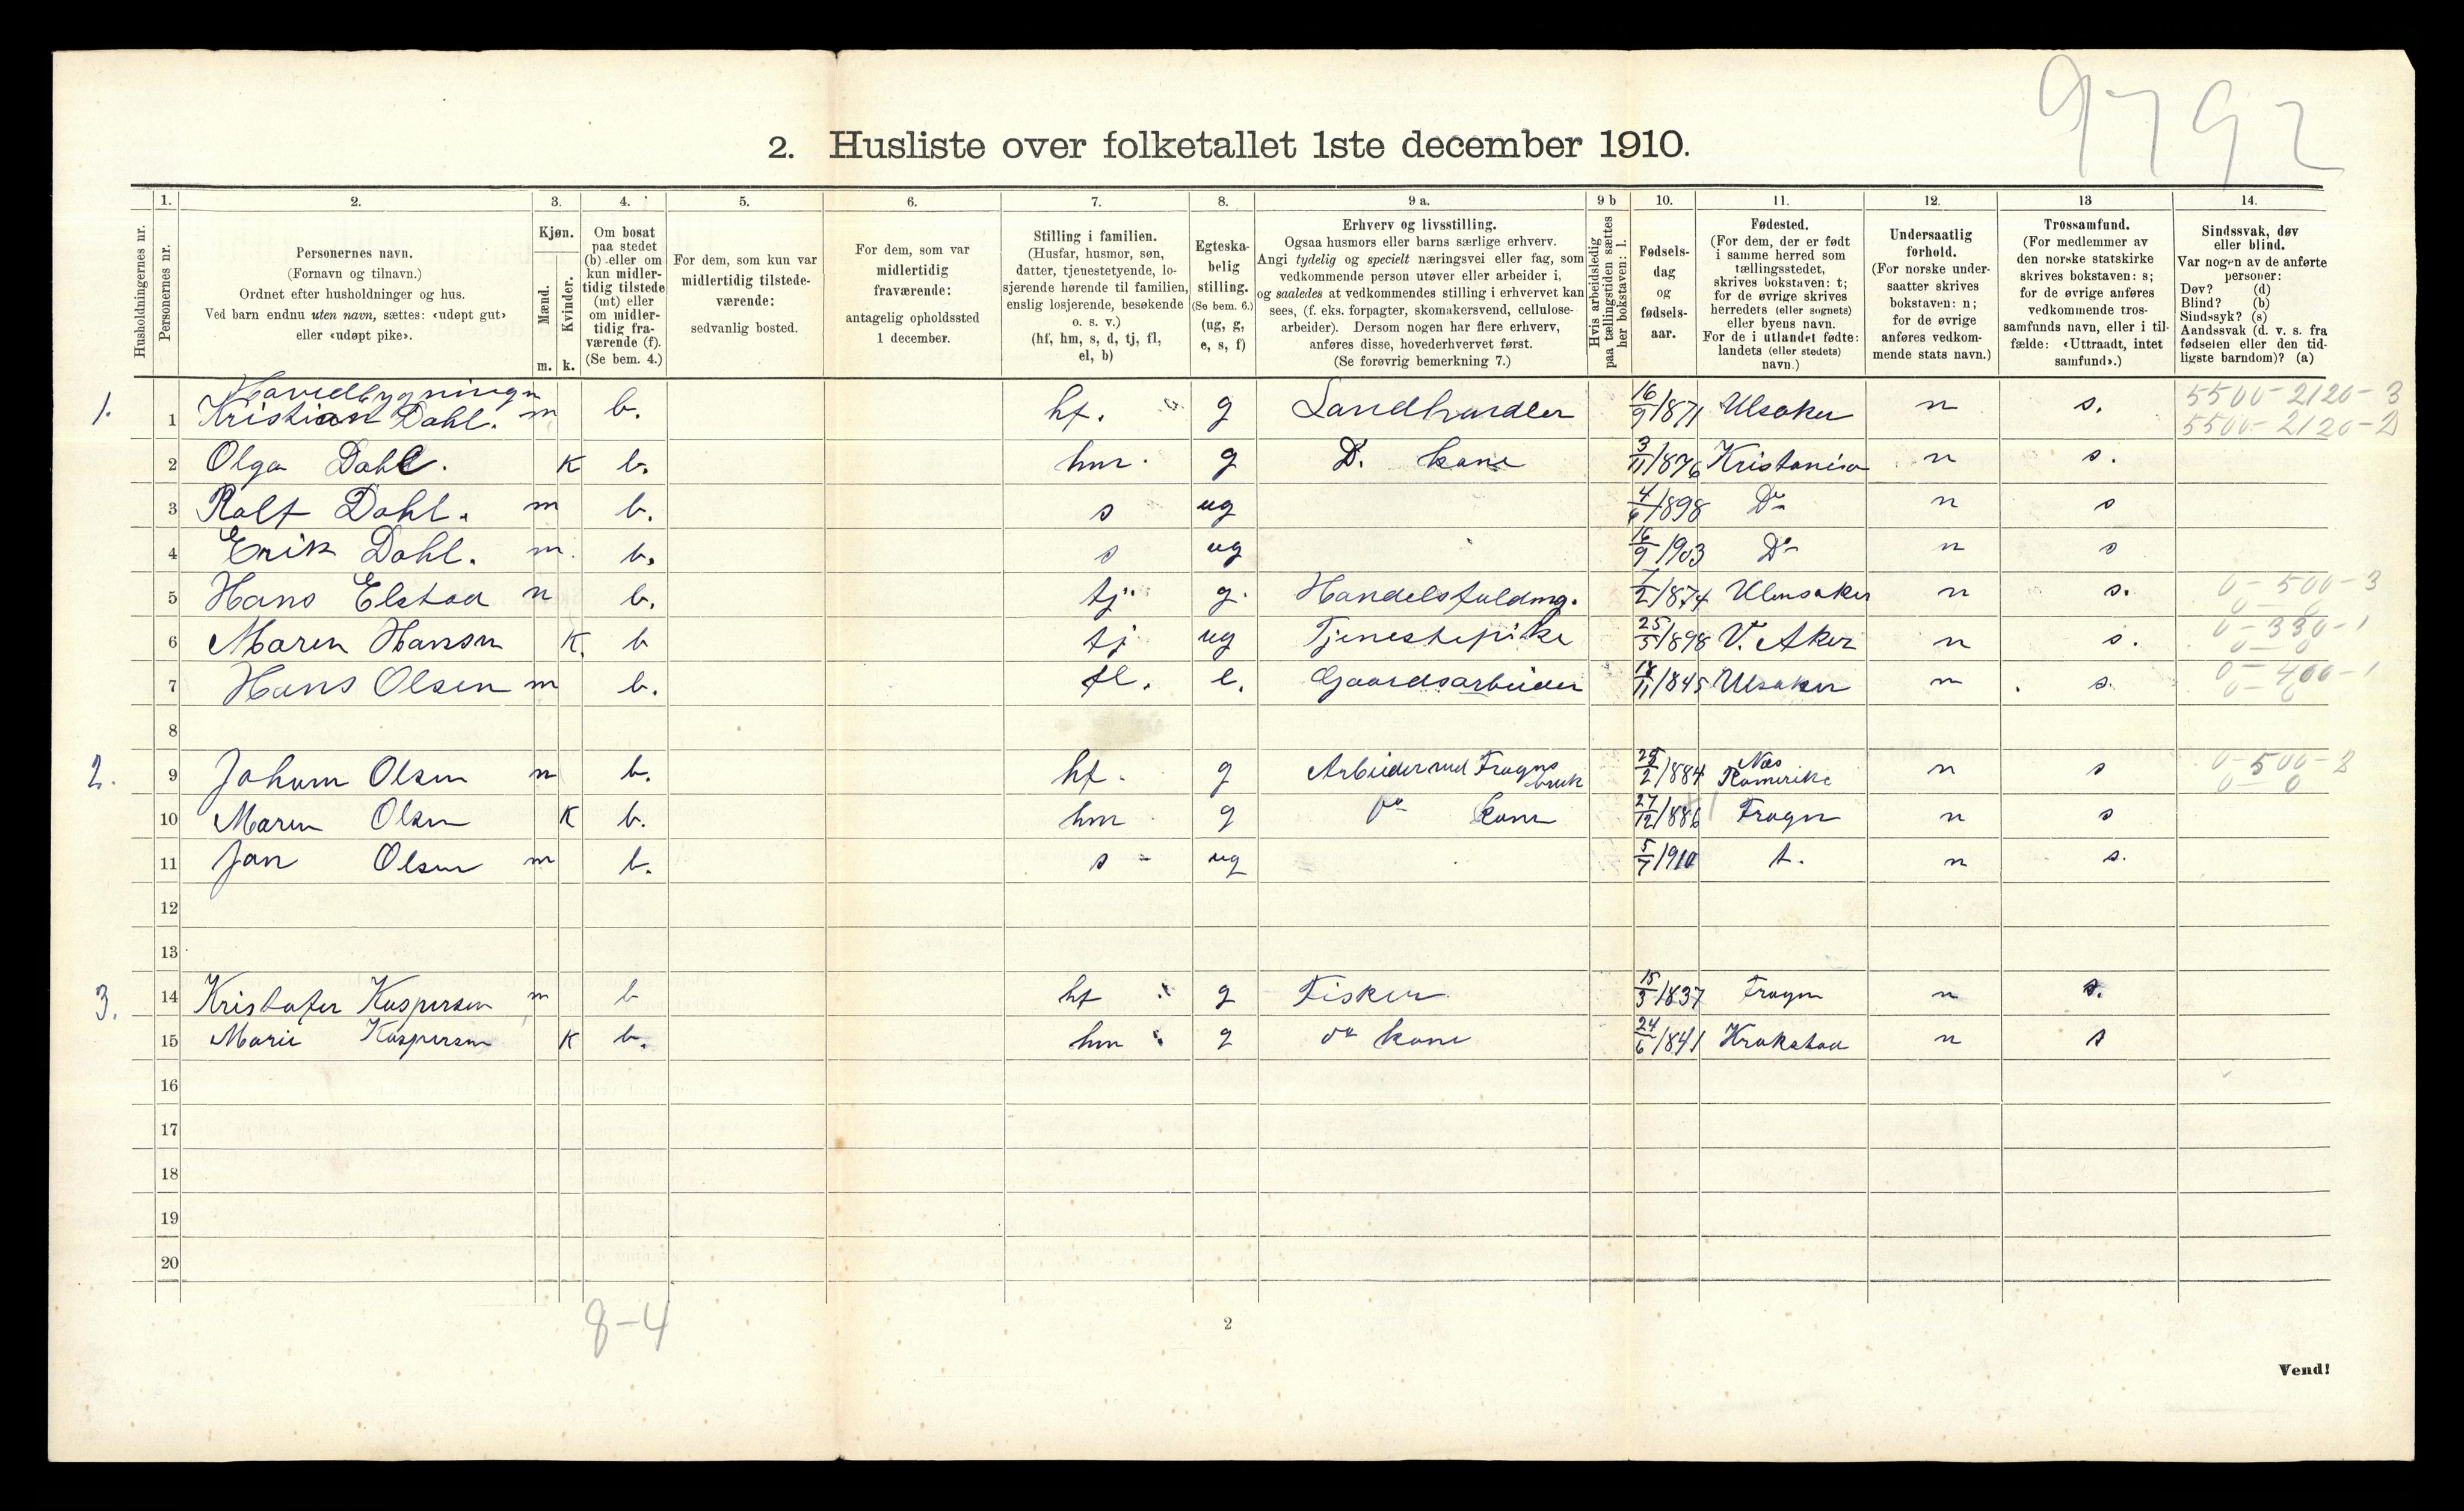 9792
2. Husliste over folketallet 1ste december 1910.
Husholdningernes nr.
1.
Personernes nr.
2.
Personernes navn.
(Fornavn og tilnavn.)
Ordnet efter husholdninger og hus.
Ved barn endnu uten navn, sættes: «udøpt gut»
eller «udøpt pike».
3.
Kjøn.
Mænd.
Kvinder.
m. k.
4.
Om bosat
paa stedet
(b) eller om
kun midler-
tidig tilstede
(mt) eller
om midler-
tidig fra-
værende (f).
(Se bem. 4.)
5.
For dem, som kun var
midlertidig tilstede-
værende:
sedvanlig bosted.
6.
For dem, som var
midlertidig
fraværende:
antagelig opholdssted
1 december.
7.
Stilling i familien.
(Husfar, husmor, søn,
datter, tjenestetyende, lo-
sjerende hørende til familien,
enslig losjerende, besøkende
o. s. v.)
(hf, hm, s, d, tj, fl,
el, b)
8.
Egteska-
belig
stilling.
(Se bem. 6.)
(ug, g,
e, s, f)
9 a.
Erhverv og livsstilling.
Ogsaa husmors eller barns særlige erhverv.
Angi tydelig og specielt næringsvei eller fag, som
vedkommende person utøver eller arbeider i,
og saaledes at vedkommendes stilling i erhvervet kan
sees, (f. eks. forpagter, skomakersvend, cellulose-
arbeider). Dersom nogen har flere erhverv,
anføres disse, hovederhvervet først.
(Se forøvrig bemerkning 7.)
9 b
Hvis arbeidsledig
paa tællingstiden sættes
her bokstaven: l.
10.
Fødsels-
dag
og
fødsels-
aar.
11.
Fødested.
(For dem, der er født
i samme herred som
tællingsstedet,
skrives bokstaven: t;
for de øvrige skrives
herredets (eller sognets)
eller byens navn.
For de i utlandet fødte:
landets (eller stedets)
navn.)
12.
Undersaatlig
forhold.
(For norske under-
saatter skrives
bokstaven: n;
for de øvrige
anføres vedkom-
mende stats navn.)
13
Trossamfund.
(For medlemmer av
den norske statskirke
skrives bokstaven: s;
for de øvrige anføres
vedkommende tros-
samfunds navn, eller i til-
fælde: «Uttraadt, intet
samfund».)
14.
Sindssvak, døv
eller blind.
Var nogen av de anførte
personer:
Døv? (d)
Blind? (b)
Sindssyk? (s)
Aandssvak (d. v. s. fra
fødselen eller den tid-
ligste barndom)? (a)
Havedbygningen
1. 1 Kristian Dahl. m b. hf. g Landhandler 16/9/871 Ulsaker n s. 5500-2120-3
5500-2120-2
2 Olga Dahl. K b. hm. g D. kone 3/11/876 Kristania n s.
3 Rolf Dahl. m b. s ug 4/6/1898 Do n s
4 Erik Dahl. m. b. s ug 16/9/1903 Do n s
5 Hans Elstad m b. tj. g. Handelsfuldmg. 7/2/1874 Ulensaker n s. 0-500-3
0-0
6 Maren Hansen K. b tj ug Tjenestepike 25/5/1898 V. Aker n s. 0-330-1
0-0
7 Hans Olsen m b. fl. e. Gaardsarbeider 18/11/1845 Ulsaker n s. 0-400-1
0-0
8
2. 9 Johan Olsen m b. hf. g Arbeider ved Frogns
bruk 25/2/1884 Næs
Romerike n s 0-500-2
0-0
10 Maren Olsen K b. hm g do kone 27/12/1886 Frogn n s
11 Jan Olsen m b. s ug 5/7/1910 t. n s.
12
13
3. 14 Kristofer Kaspersen m b hf g Fisker 15/3/1837 Frogn n s.
15 Marie Kaspersen K b. hm g do kone 24/6/1841 Krakstad n s
16
17
18
19
20
8-4
2
Vend!